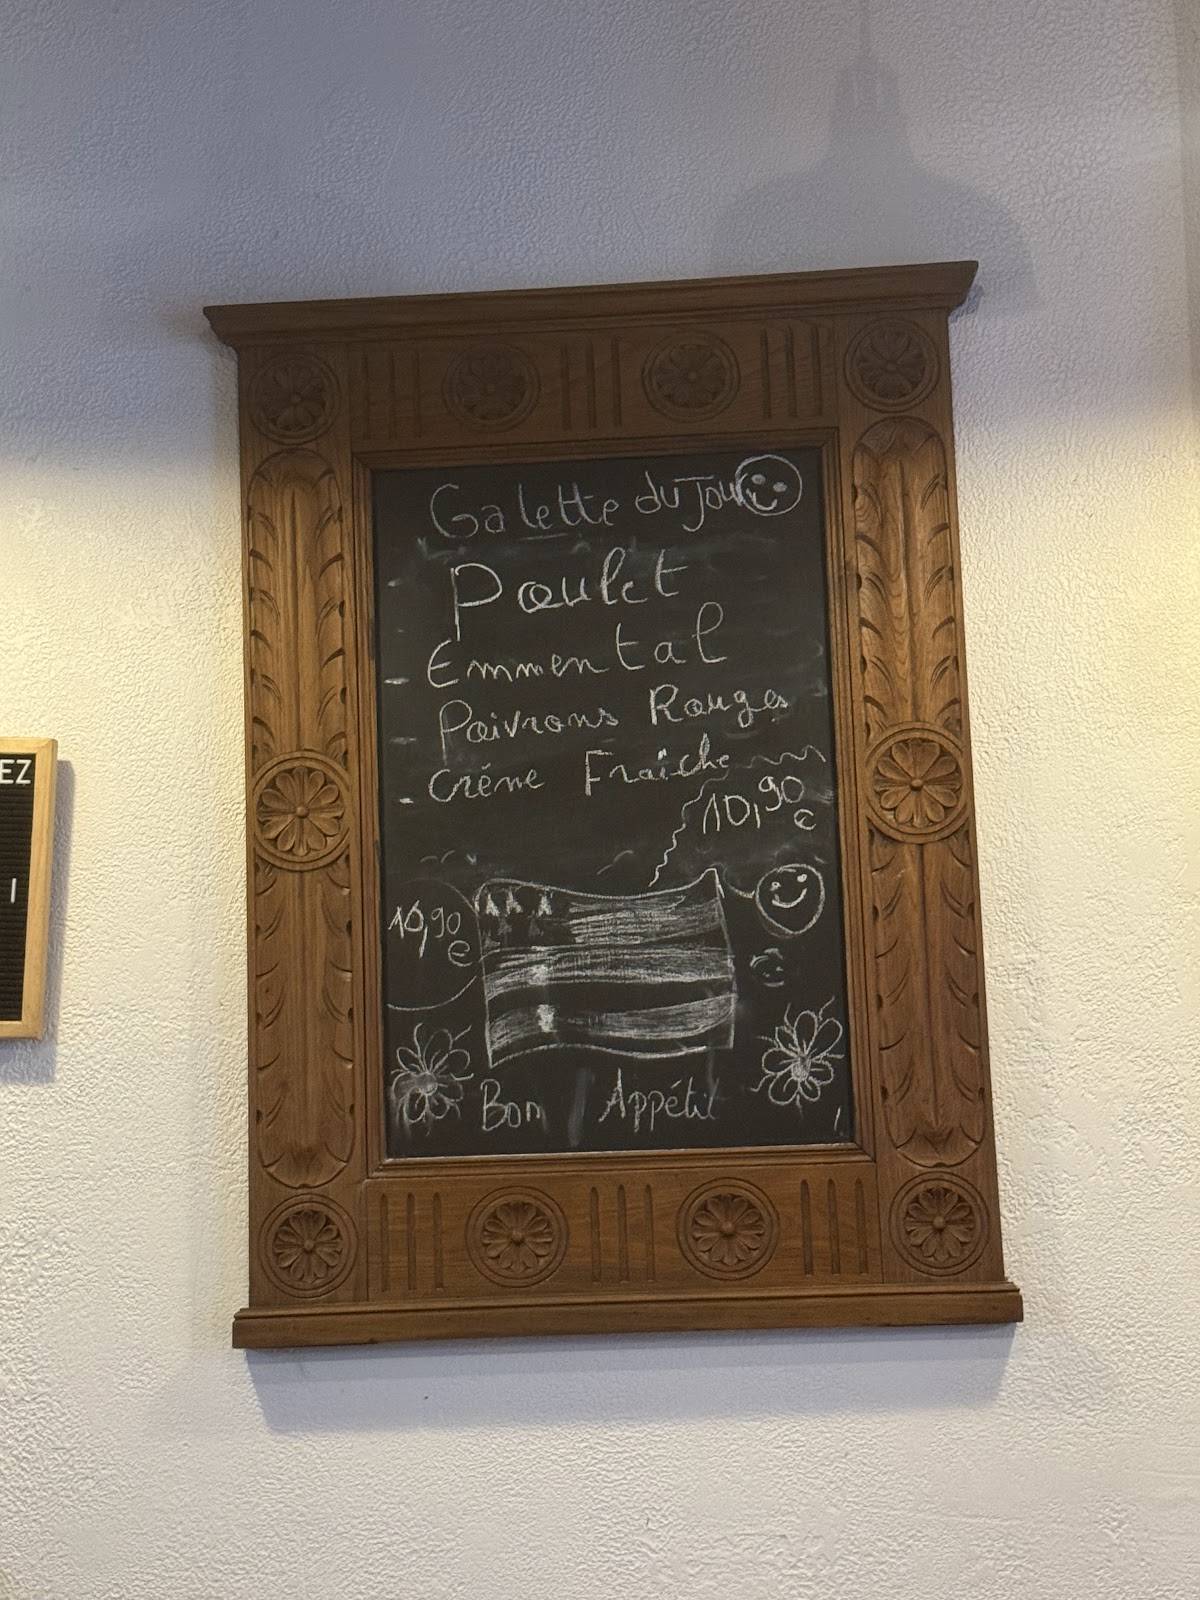 Galette du Jour
Poulet
- Emmental
- Poivrons Rouges
- Crème Fraîche
10,90
€
10,90
€
Bon Appétit
EZ